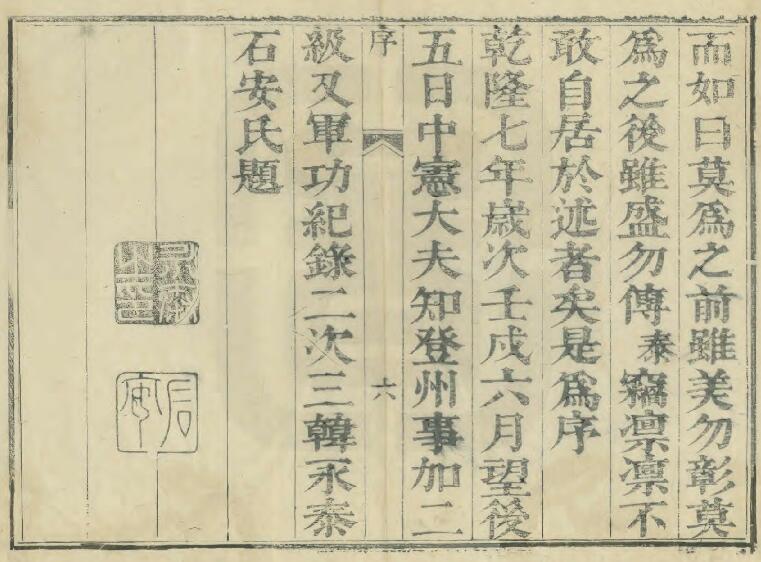 而如曰莫爲之前雖美勿彰莫
爲之後雖盛勿傳泰竊凛凛不
敢自居於述者矣是爲序
乾隆七年歲次壬戌六月望後
五日中憲大夫知登州事加二
序
六
級又軍功紀錄二次三韓永泰
石安氏題
石安